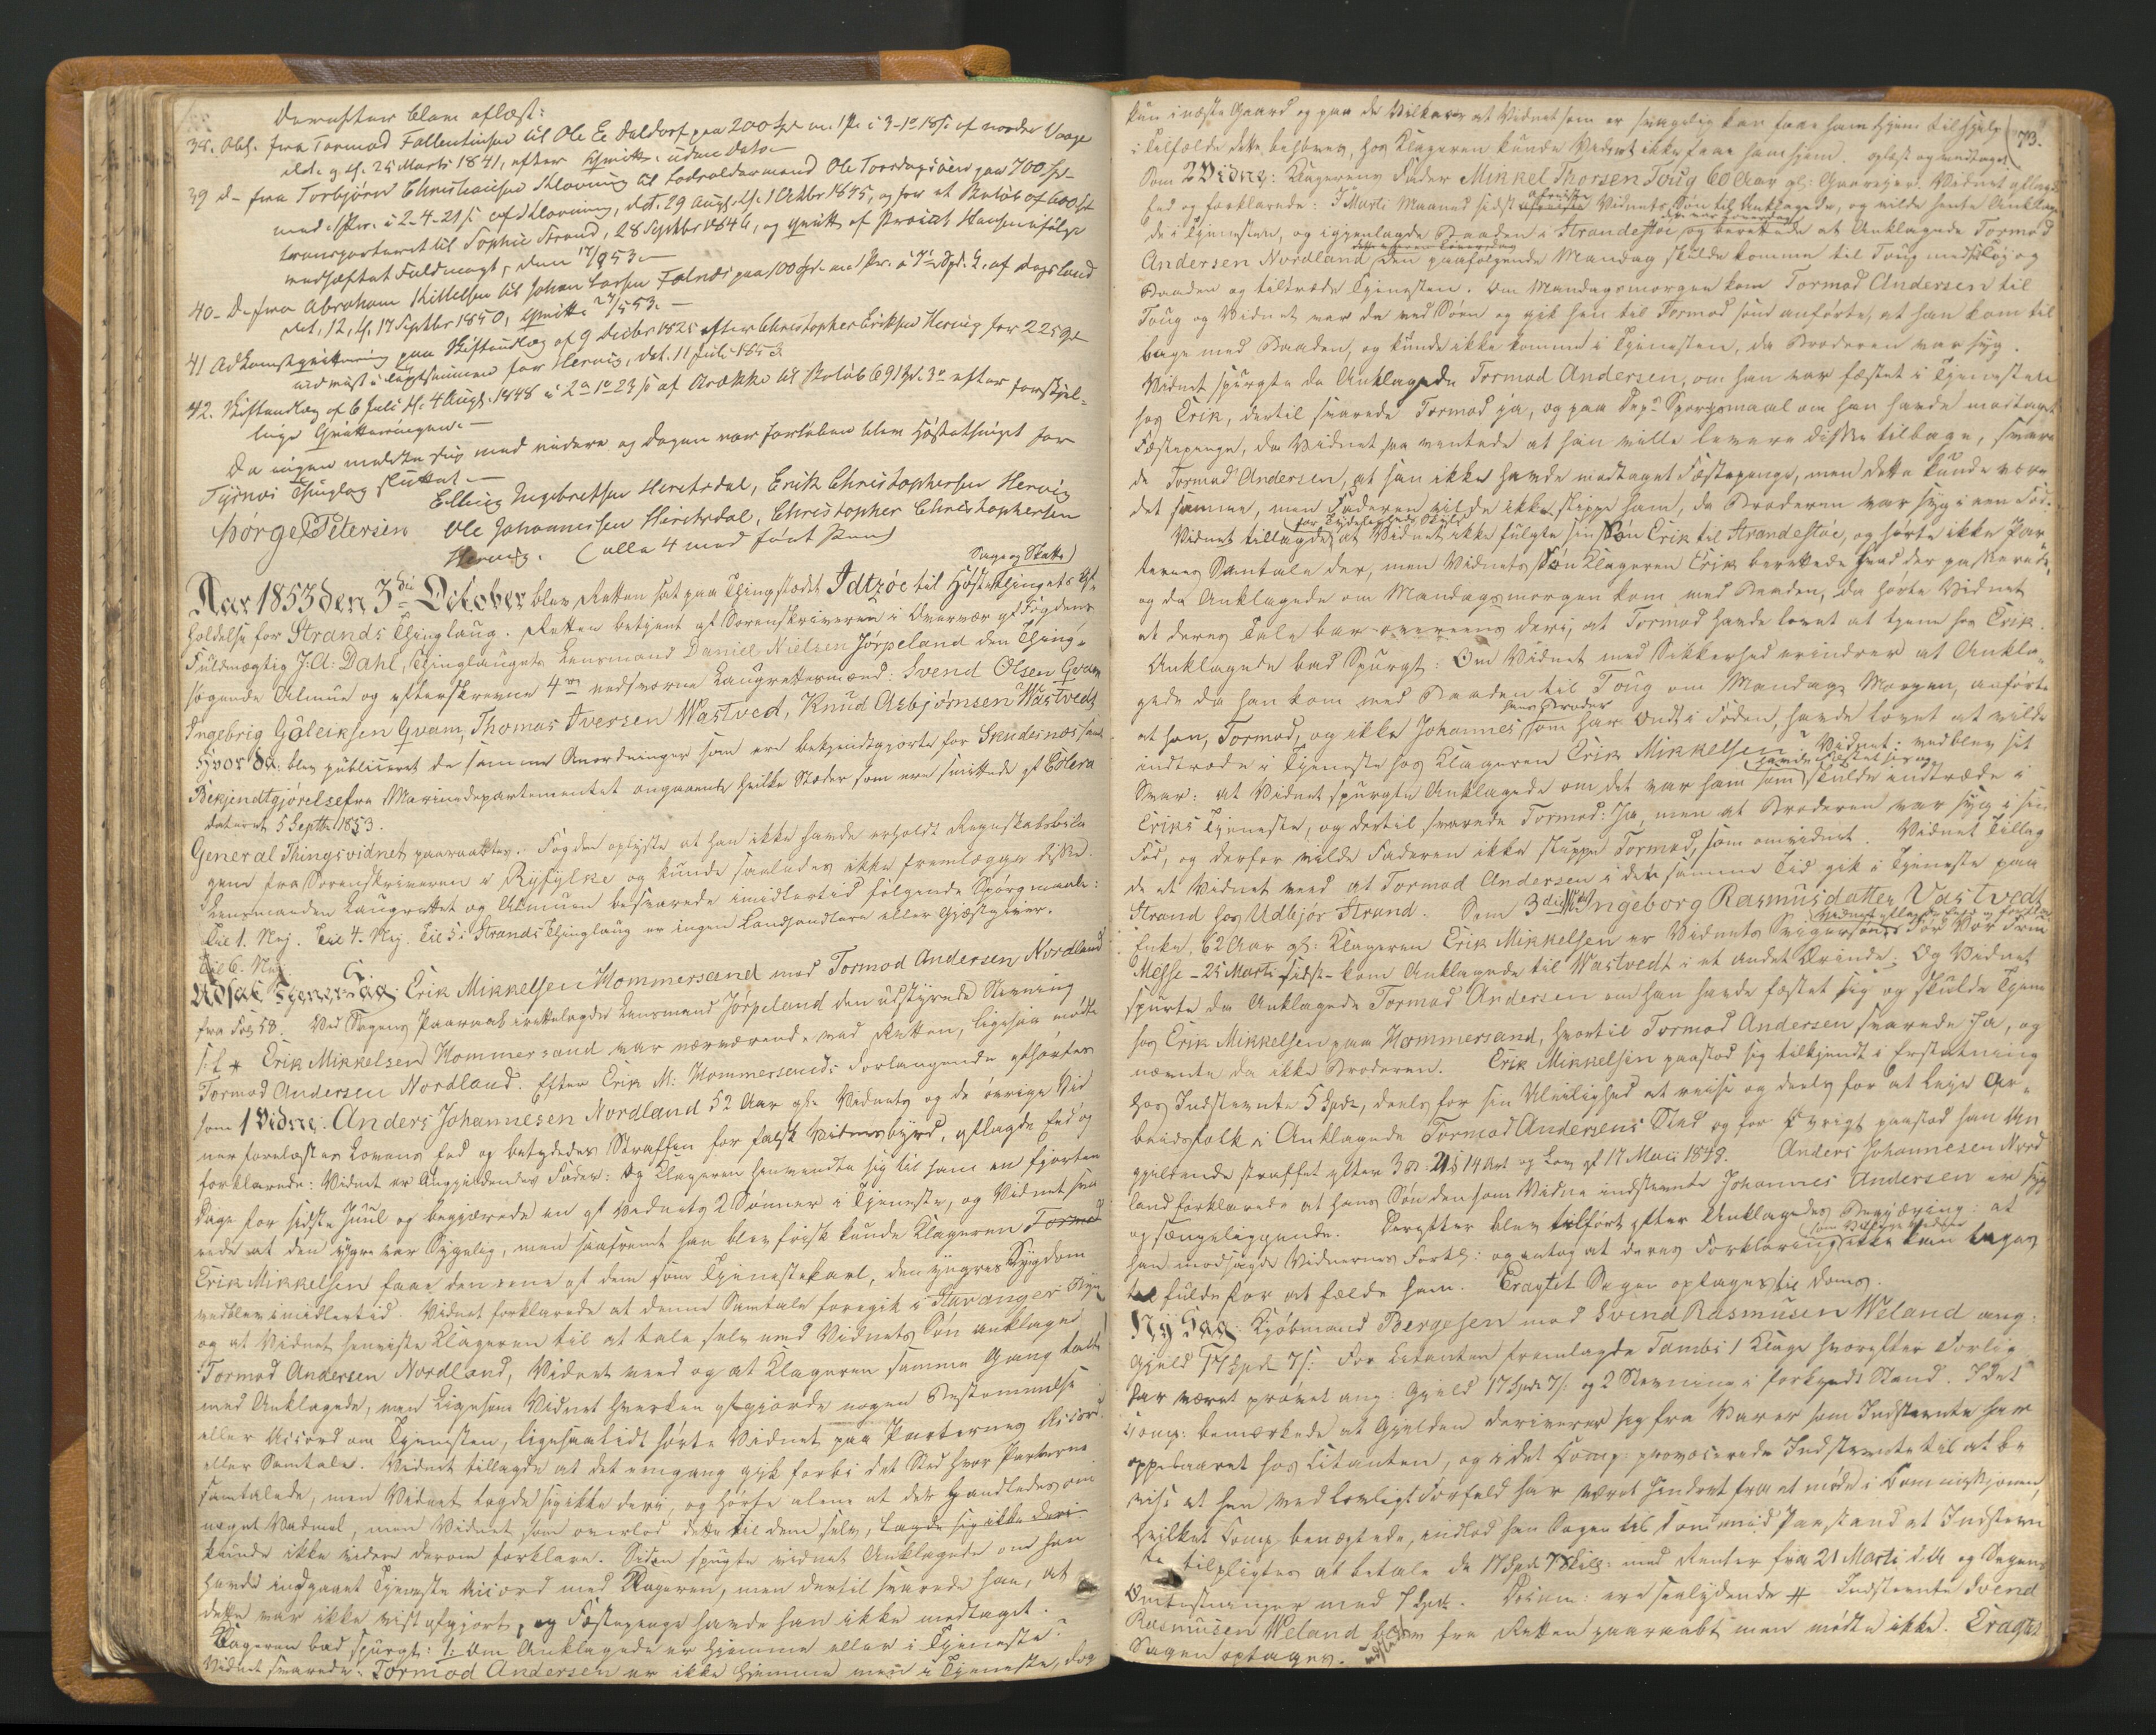 derefter blev aflæst:
38. Obl. fra Tormod Fallentinsen til Ole E. Daldorf paa 200 Spd m. 1 Pr. i af nordre Vaage
dat. q. lf. 25 Marti 1841, efter Qvitt. uden dato
39 D– fra Torbjörn Christiansen Klovning til Lodsoldermand Ole Toresdagsøen paa 700 Spd
med 1 Pr. i 2-4-21 s af Klovning, dat. 29 Aug. lf. 1 Octbr 1845, og for et Beløb af 600 Spd
transporteret til Sophie Strand, 28 Septbr 1846, og qvitt. af Hansen ifølge
vedhæftet Fuldmagt, den 17/9 53.–
40– D– fra Abraham Kittelsen til Johan Larsen Falnæs paa 100 Spd med Pr. i
dat. 12, lf. 17 Septbr 1850, Qvitt. 53.–
41 Adkomstqvittering paa Skiftendlæg af 9 Decbr 1825 efter Christopher Eriksen Hervig for 225 Spd
Hervig, dat. 11 Juli 1853.
42. Skifteudlæg af 6 Juli lf. 4 Aug. 1848 i af Arække til Beløb efter forskjel-
lige Qvitteringer.–
Da ingen meldte sig med videre og Dagen var forløben blev Høstethinget for
Tysnæs Thinglag sluttet.–
Børge Petersen Elling Ingebretsen Heretsdal, Erik Christophersen Hervig
Ole Johannesen Heretsdal, Christopher Christophersen
Hervig. (alle 4 med ført Pen)
Sage og Skatte)
Aar 1853 den 3die October blev Retten sat paa Thingstædet Idtzöe til Höstethingets Af-
holdelse for Strands Thinglaug. Retten betjent af Sorenskriveren i Overvær af Fogdens
Fuldmægtig J. A. Dahl, Thinglaugets Lensmand Daniel Nielsen Jörpeland den Thing-
sögende Almue og efterskrevne 4re edsvorne Laugrettesmænd: Svend Olsen Qvam
Ingebrig Göleiksen Qvam, Thomas Iversen Wastved, Knud Asbjörnsen Wastvedt
Hvor da: blev publiceret de samme Anordninger som ere bekjendtgjorte for Skudesnæs samt
Bekjendtgjörelse fra Marinedepartementet angaaende hvilke Stæder som ere smittede af Colera
dateret 5 Septbr 1853.
General Thingsvidnet paaraabtes. Fogden oplyste at han ikke havde erholdt Regnskabsbila-
gene fra Sorenskriveren i Ryfylke og kunde saaledes ikke fremlægge disse.
Lensmanden Laugrettet og Almuen besvarede imidlertid fölgende Spörgmaale:
Til 1. Nej. Til 4. Nej. Til 5. Strands Thinglaug er ingen Landhandlere eller Gjæstgiver.
Til 6. Nej.
Udsat Tjener Sag: Erik Mikkelsen Hommersand mod Tormod Andersen Nordland
fra Fol 58. Ved Sagens Paaraab irettelagdes Lensmand Jörpeland den udstyrede Stevning
s. l. # Erik Mikkelsen Hommersand var nærværende ved Retten, ligesaa mödte
Tormod Andersen Nordland. Efter Erik M. Hommersands Forlangende afhörtes
som 1 Vidne: Anders Johannesen Nordland 52 Aar gl. Vidnets og de övrige Vid-
ner forelæstes Lovens Eed og betydedes Straffen for falsk Vidnesbyrd, aflagde Eed og
forklarede: Vidnet er Angjeldendes Fader: Og Klageren henvendte sig til ham en fjorten
Dage for sidste Juul og begjærede en af Vidnets 2 Sönner i Tjeneste, og Vidnet sva-
rede at den yngre var Sygelig, men saafremt han blev frisk kunde Klageren Tormod
Erik Mikkelsen faae den ene af dem som Tjenestekarl, den yngres Sygdom
vedblev imidlertid. Vidnet forklarede at denne Samtale foregik i Stavanger By
og at Vidnet henviste Klageren til at tale selv med Vidnets Sön anklaget
Tormod Andersen Nordland, Vidnet veed og at Klageren samme Gang talte
med Anklagede, men Ligesom Vidnet hverken afgjorde nogen Bestemmelse
eller Accord om Tjenesten, ligesaalidt hörte Vidnet paa Parternes Accord
eller Samtale. Vidnet tillagde at det eengang gik forbi det Sted hvor Parterne
samtalede, men Vidnet lagde sig ikke deri, og hörte alene at der handledes om
noget Vadmel, men Vidnet som overlod dette til dem selv, lagde sig ikke deri
kunde ikke videre derom forklare. Siden spurgte Vidnet Anklagede om han
havde indgaaet Tjeneste Accord med Klageren, men dertil svarede han, at
dette var ikke vist afgjort, og Fæstepenge havde han ikke modtaget.
Klageren bad spurgt: 1. Om Anklagede er hjemme eller i Tjeneste?
Vidnet svarede: Tormod Andersen er ikke hjemme men i Tjeneste, dog
73.
kun i næste Gaard og paa de Vilkaar at Vidnet som er svagelig kan faae ham hjem til Hjelp
i Tilfælde dette behöves, hos Klageren kunde Vidnet ikke faae ham hjem. oplæst og vedtaget
Som 2 Vidne: Klagerens Fader Mikkel Thorsen Toug 60 Aar gl: Gaardejer. Vidnet aflagde
Eed og forklarede: I Marti Maaned sidst afreiste Vidnets Sön til Anklagede, og vilde hente Anklage-
de i Tjenesten, og igjenlagde Baaden i Strandestöe, det var Löverdag og berettede at Anklagede Tormod
Andersen Nordland den paafölgende Mandag skulde komme til Toug med Töj og
Baaden og tiltræde Tjenesten. Om Mandagsmorgen kom Tormod Andersen til
Toug og Vidnet var da ved Söen og gik hen til Tormod som anförte, at han kom til-
bage med Baaden, og kunde ikke komme i Tjenesten, da Broderen var syg.
Vidnet spurgte da Anklagede Tormod Andersen, om han var fæstet i Tjenesten
hos Erik, dertil svarede Tormod ja, og paa Dep: Spörgsmaal om han havde modtaget
Fæstepenge, da Vidnet saa ventede at han ville levere disse tilbage, svare-
de Tormod Andersen, at han ikke havde modtaget Fæstepenge, men dette kunde være
det samme, men Faderen vilde ikke slippe ham, da Broderen var syg i een Fod.
Vidnet tillagde for Tydeligheds Skyld at Vidnet ikke fulgte sin Sön Erik til Strandestöe, og hörte ikke Par-
ternes Samtale der, men Vidnets Sön Klageren Erik berettede hvad der passerede,
og da Anklagede om Mandagsmorgen kom med Baaden, da hörte Vidnet
at deres Tale bar overeens deri, at Tormod havde lovet at tjene hos Erik.
Anklagede bad Spurgt: Om Vidnet med Sikkerhed erindrer at Ankla-
gede da han kom med Baaden til Toug om Mandags Morgen, anförte
at han, Tormod, og ikke hans Broder Johannes som har Ondt i Foden, havde lovet at ville
indtræde i Tjeneste hos Klageren Erik Mikkelsen? Vidnet: vedblev sit
Svar: at Vidnet spurgte Anklagede om det var ham som havde fæstet sig og skulde indtræde i
Eriks Tjeneste, og dertil svarede Tormod: Ja, men at Broderen var syg i sin
Fod, og derfor vilde Faderen ikke slippe Tormod, som omvidnet. Vidnet Tillag-
de at Vidnet veed at Tormod Andersen i den samme Tid gik i Tjeneste paa
Strand hos Udbjör Strand. Som 3die Vidne Ingeborg Rasmusdatter Vastvedt
Enke, 62 Aar gl: Klageren Erik Mikkelsen er Vidnets Svigersön: Vidnet aflagde Eed og forklarede For Vor Frue
Messe – 25 Marti sidst – kom Anklagede til Wastvedt i et andet Ærinde: Og Vidnet
spurte da Anklagede Tormod Andersen om han havde fæstet sig og skulde Tjene
hos Erik Mikkelsen paa Hommersand, hvortil Tormod Andersen svarede Ja, og
nævnte da ikke Broderen. Erik Mikkelsen paastod sig tilkjendt i Erstatning
hos Indstevnte 5 Spd, deels for sin Uleilighed at reise og deels for at Leje Ar-
beidsfolk i Anklagede Tormod Andersens Sted og for Övrigt paastod han An-
gjeldende straffet efter 3 B. 21 C 14 Art og Lov af 17 Maii 1848. Anders Johannesen Nord-
land forklarede at hans Sön den som Vidne indstevnte Johannes Andersen er syg
og sængeliggende. Derefter blev tilfört efter Anklagedes Begjæring: at
han modsagde Vidnernes Forkl: og antog at deres Forklaring ikke kan tages
til fulde for at fælde ham. Eragtet Sagen optages til Doms.
Ny Sag: Kjöbmand Bergesen mod Svend Rasmusen Weland ang:
Gjeld 17 Spd 7 s: For Citanten fremlagde Tambs 1 Klage hvorefter Forlig
har været prövet ang: Gjeld 17 Spd 7 s. og 2 Stevning i forkyndt Stand. Idet
Comp: bemærkede at Gjelden deriverer sig fra Varer som Indstevnte har
oppebaaret hos Citanten, og idet Comp: provocerede Indstevnte til at be-
vise at han ved lovligt Forfald har været hindret fra at möde i Commissionen,
hvilket Comp: benægtede, indlod han Sagen til Dom med Paastand at Indstevn-
te tilpligtes at betale de 17 Spd 7 Skill: med Renter fra 21 Marti d. A. og Sagens
Omkostninger med 7 Spd. Docum: ere saalydende # Indstevnte Svend
Rasmusen Weland blev fra Retten paaraabt men mödte ikke. Eragtet
Sagen optages.